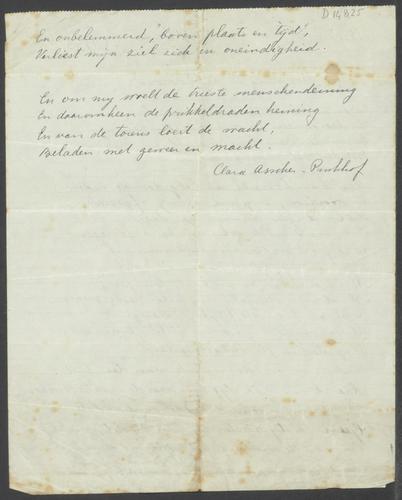 D 14825
En onbelemmerd, boven plaats en tijd,
Verliest mijn ziel zich in oneindigheid.
En om mij woelt de trieste menschendeining
En daaromheen de prikkeldraden heining
En van de torens loert de wacht,
Beladen met geweer en macht.
Clara Asscher-Pinkhof